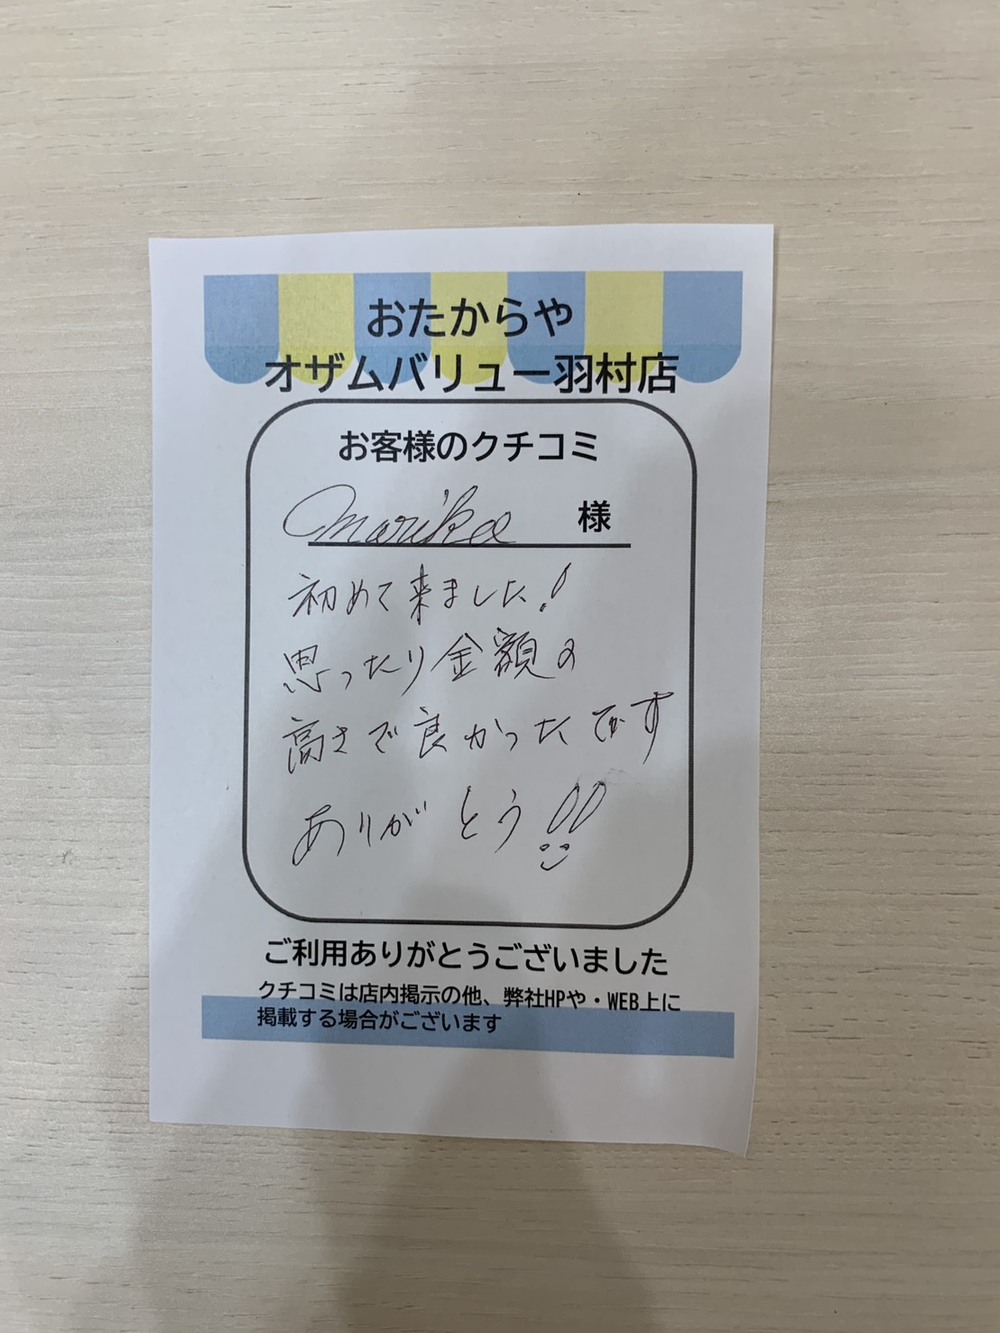 おたからや
オザムバリュー羽村店
お客様のクチコミ
marika 様
初めて来ました!
思ったり金額の
高さで良かったです
ありがとう!!
ご利用ありがとうございました
クチコミは店内掲示の他、弊社HPや・WEB上に
掲載する場合がございます